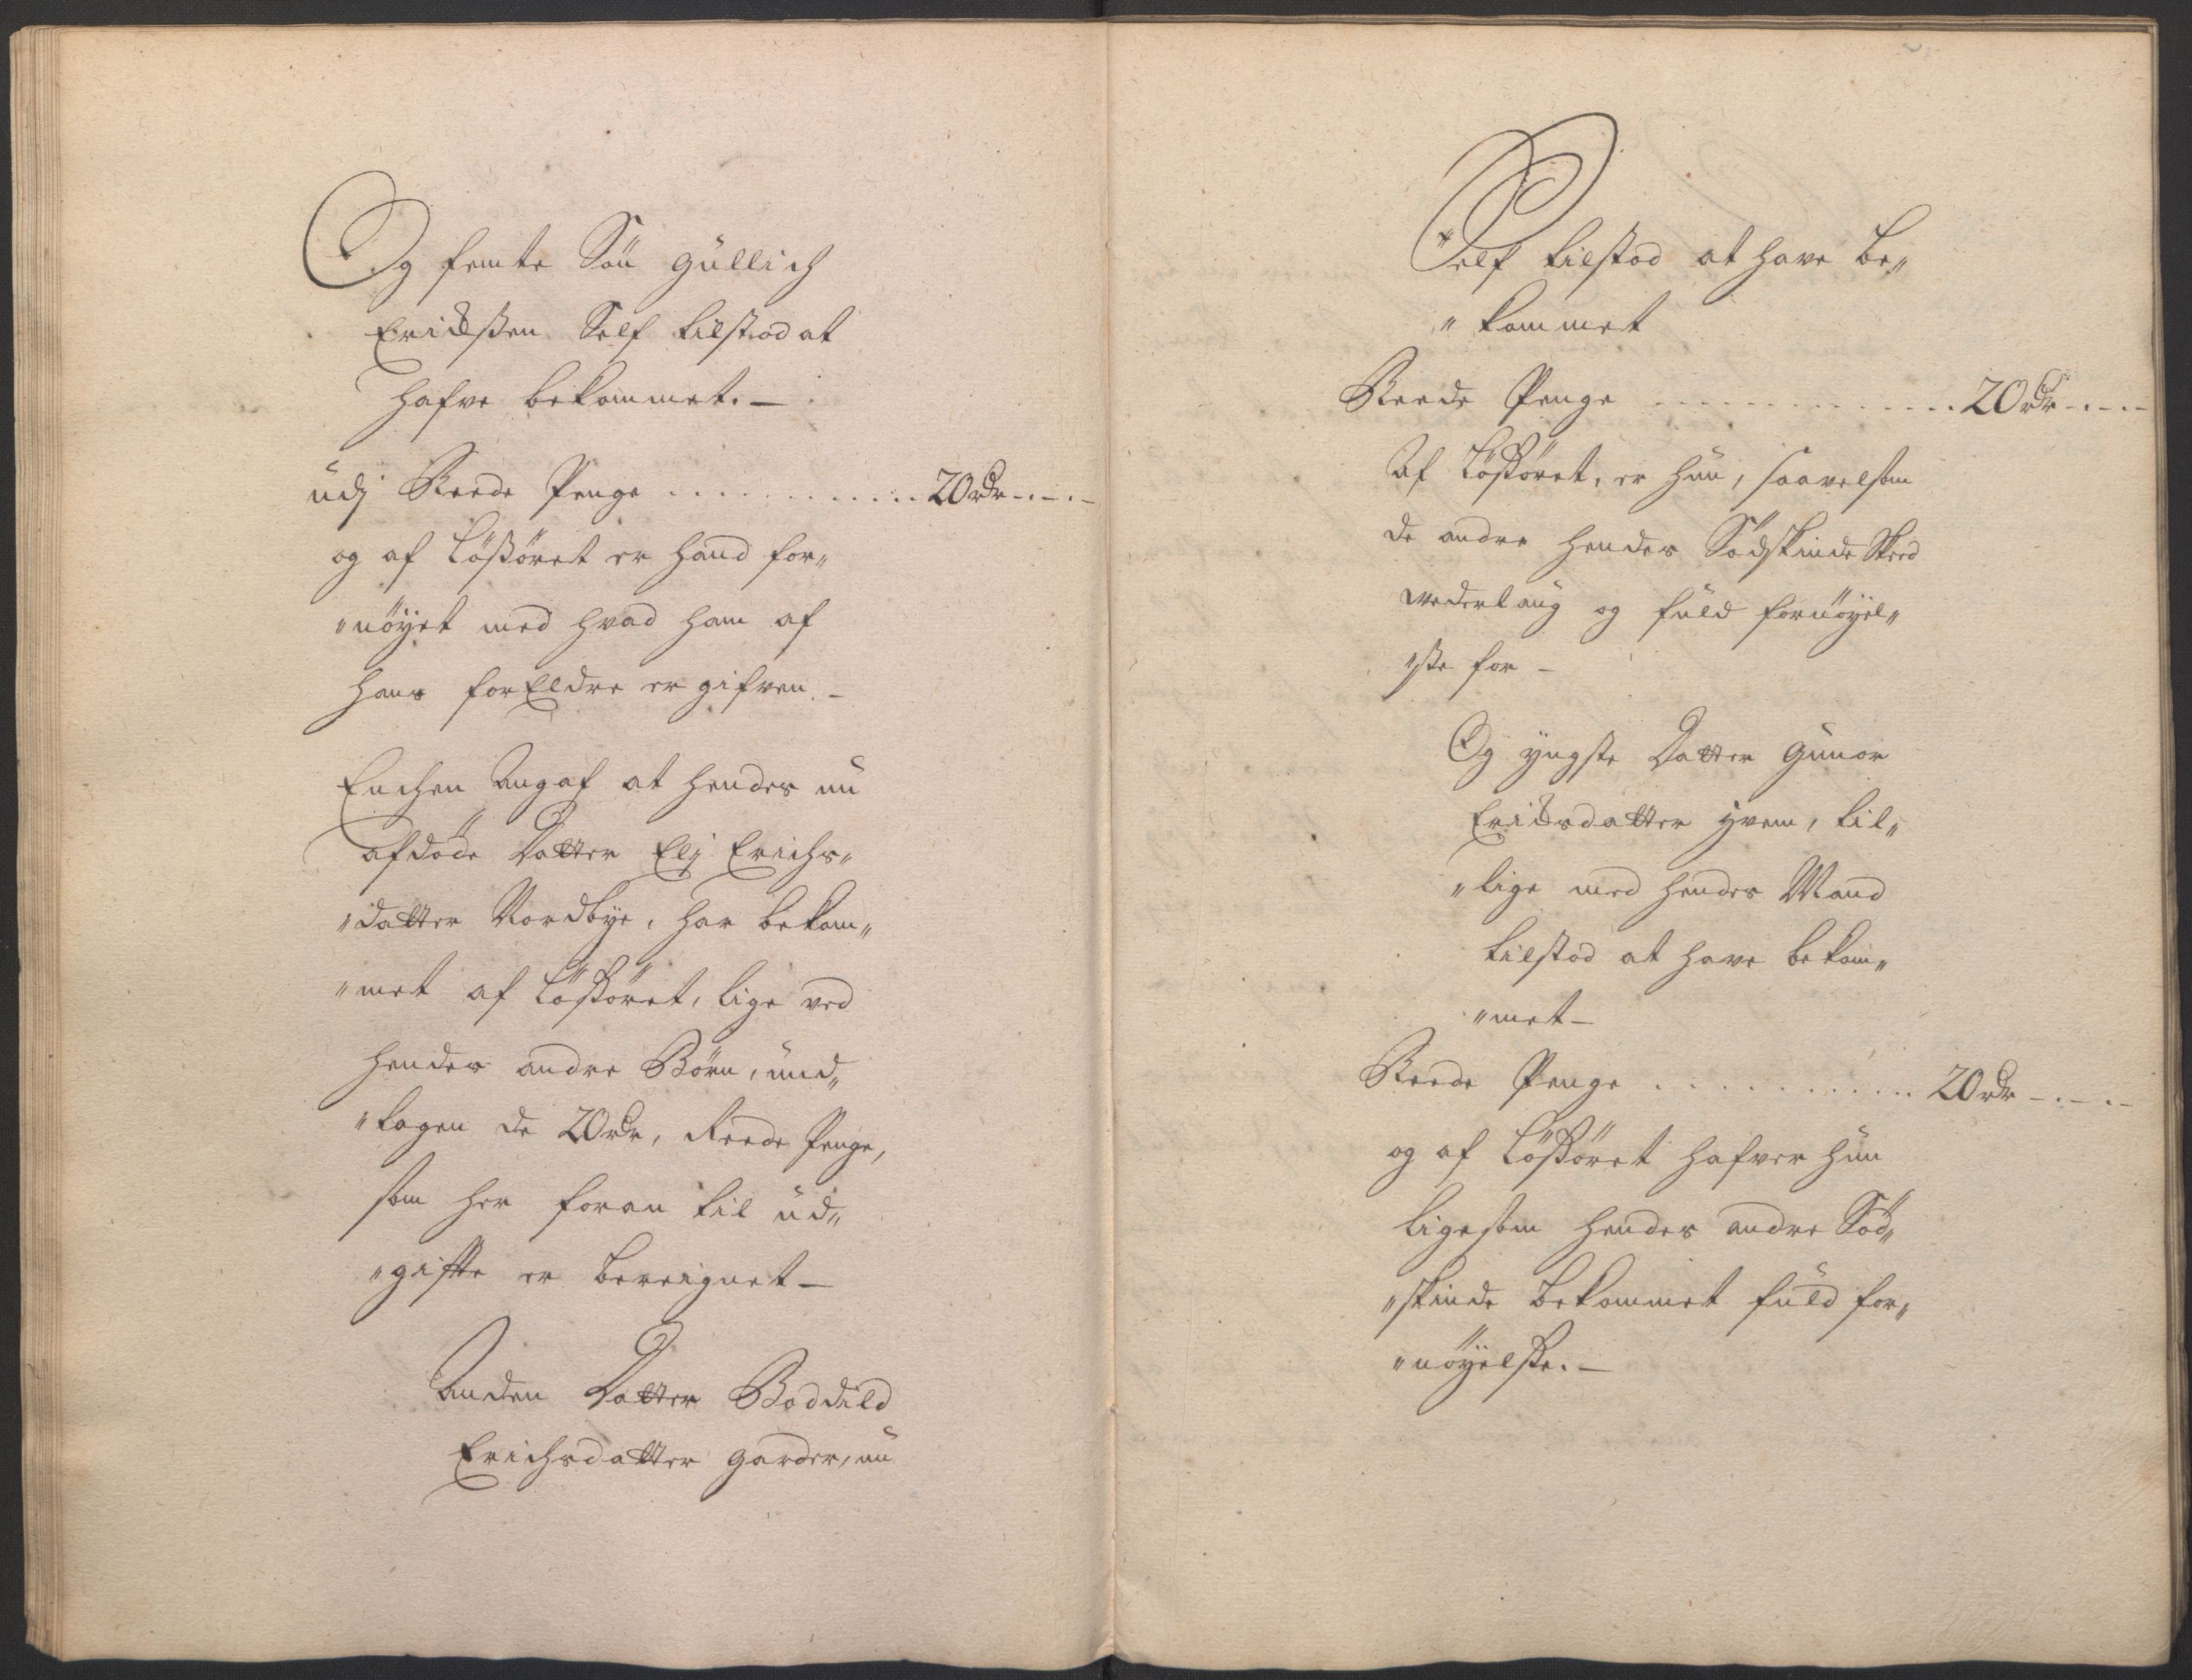 Og femte Søn Gullich
Erichssen Self tilstod at
hafve bekommet.-
udj Reede Penge ............ 20 rdr-.-.-
og af Løsøret er hand for„
„nøyet med hvad ham af
hans forEldre er gifven.-
Enchen Angaf at hendes nu
afdøde Datter Elj Erichs„
„datter Nordbye, har bekom„
„met af Løsøret, lige ved
hendes andre Børn, und„
„tagen de 20 rdr, Reede Penge,
som her foran til ud„
„gifte er bereignet-
Anden Datter Boddild
Erichsdatter Garder, nu
Self tilstod at have be„
„kommet
Reede Penge ............. 20 rdr-.-.-
Af Løsøret, er hun, saavelsom
de andre hendes Sødskinde Skeed
vederlaug og fuld fornøyel„
„sse for -
Og yngste Datter Gunor
Erichsdatter , til„
„lige med hendes Mand
tilstod at have bekom„
„met-
Reede Penge ........... 20 rdr-.-.-
og af Løsøret hafver hun
ligesom hendes andre Sød„
„skinde bekommet fuld for„
„nøyelsse.-